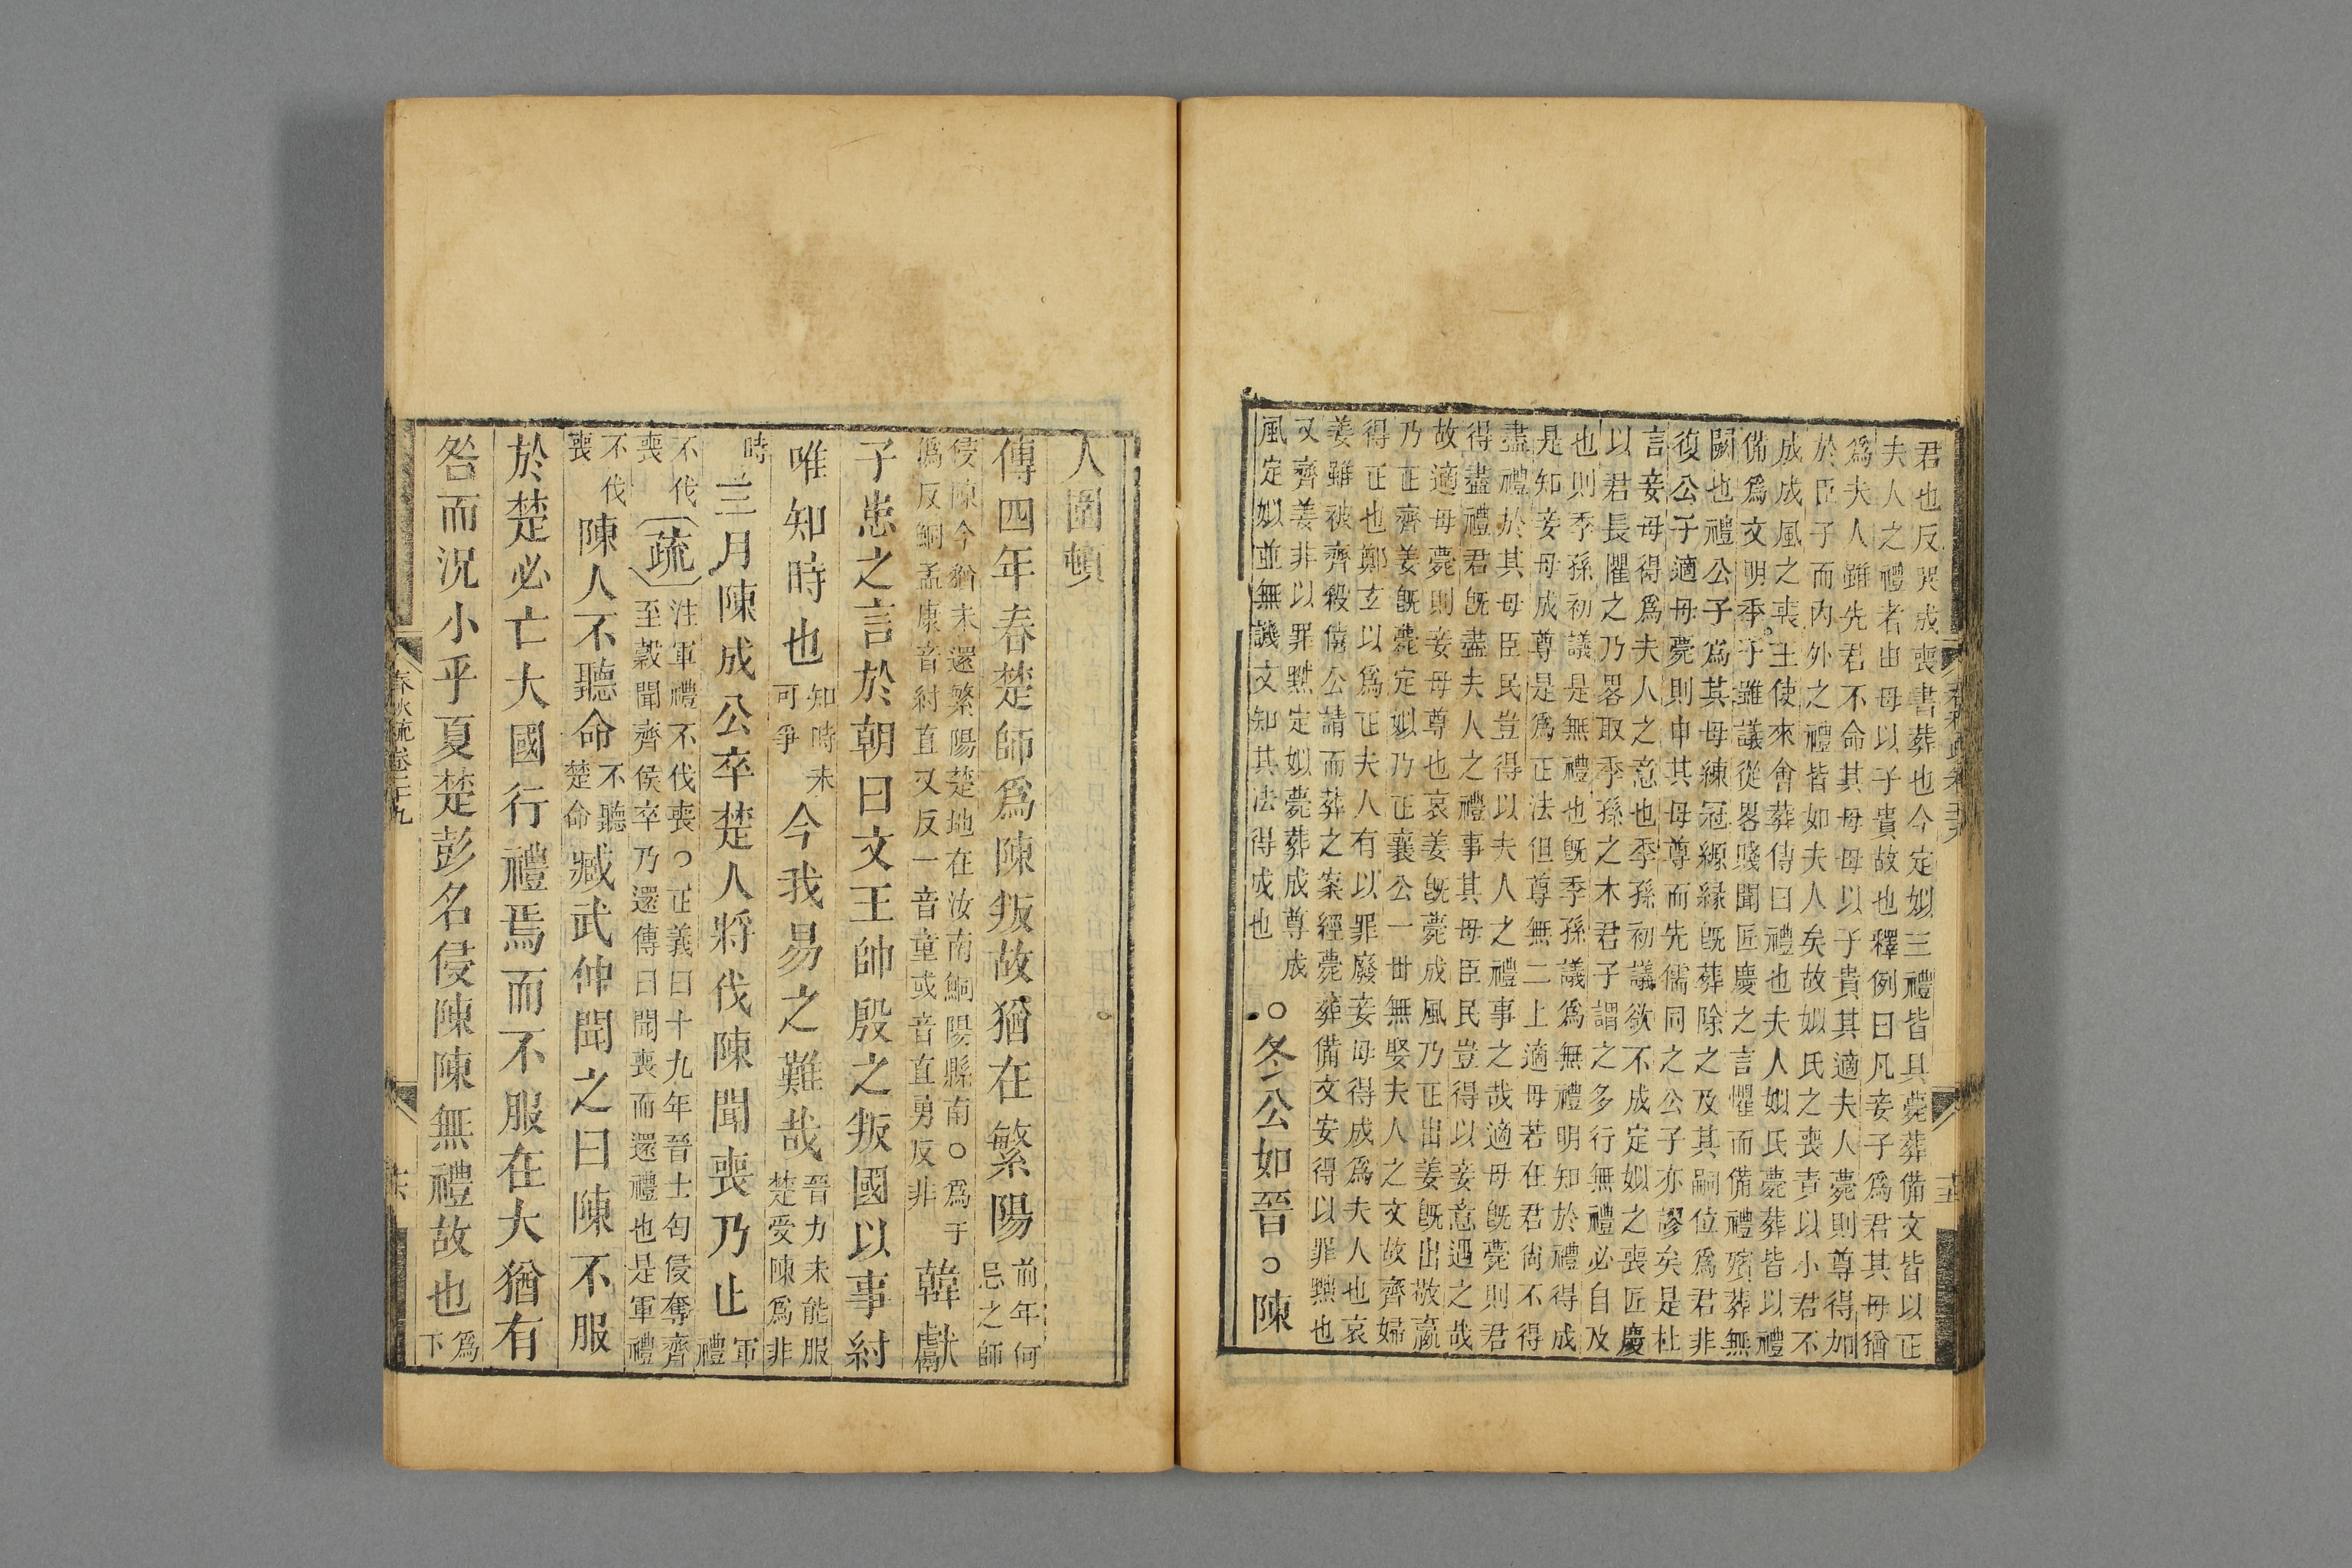 君也反哭成喪書葬也今定姒三禮皆具薨葬備文皆以正
夫人之禮者由母以子貴故也釋例曰凡妾子爲君其母猶
爲夫人雖先君不命其母母以子貴其適夫人薨則尊得加
於臣子而內外之禮皆如夫人矣故姒氏之喪責以小君不
成成風之喪王使來會葬傳曰禮也夫人姒氏薨葬皆以禮
備爲文明季子雖議從畧賤聞匠慶之言懼而備禮殯葬無
闕也禮公子爲其母練冠縓緣旣葬除之及其嗣位爲君非
復公子適母薨則申其母尊而先儒同之公子亦謬矣是杜
言妾母得爲夫人之意也季孫初議欲不成定姒之喪匠慶
以君長懼之乃畧取季孫之木君子謂之多行無禮必自及
也則季孫初議是無禮也旣季孫議爲無禮明知於禮得成
是知妾母成尊是爲正法但尊無二上適母若在君尚不得
盡禮於其母臣民豈得以夫人之禮事之哉適母旣薨則君
得盡禮君旣盡夫人之禮事其母臣民豈得以妾意遇之哉
故適母薨則妾母尊也哀姜旣薨成風乃正出姜旣出敬嬴
乃正齊姜旣薨定姒乃正襄公一世無娶夫人之文故齊婦
得正也鄭玄以爲正夫人有以罪廢妾母得成爲夫人也哀
姜雖被齊殺僖公請而葬之案經薨葬備文安得以罪黜也
又齊姜非以罪黜定姒薨葬成尊成
風定姒並無譏文知其法得成也
○冬公如晉○陳
人圍頓
傳四年春楚師爲陳叛故猶在繁陽
前年何
忌之師
侵陳今猶未還繁陽楚地在汝南鮦陽縣南○爲于
僞反鮦孟康音紂直又反一音童或音直勇反非
韓獻
子患之言於朝曰文王帥殷之叛國以事紂
唯知時也
知時未
可爭
今我易之難哉
晉力未能服
楚受陳爲非
時
三月陳成公卒楚人將伐陳聞喪乃止
軍
禮
不伐
喪
疏
注軍禮不伐喪○正義曰十九年晉士匄侵奪齊
至穀聞齊侯卒乃還傳曰聞喪而還禮也是軍禮
不伐
喪
陳人不聽命
不聽
楚命
臧武仲聞之曰陳不服
於楚必亡大國行禮焉而不服在大猶有
咎而況小乎夏楚彭名侵陳陳無禮故也
爲
下
春秋疏卷二十九